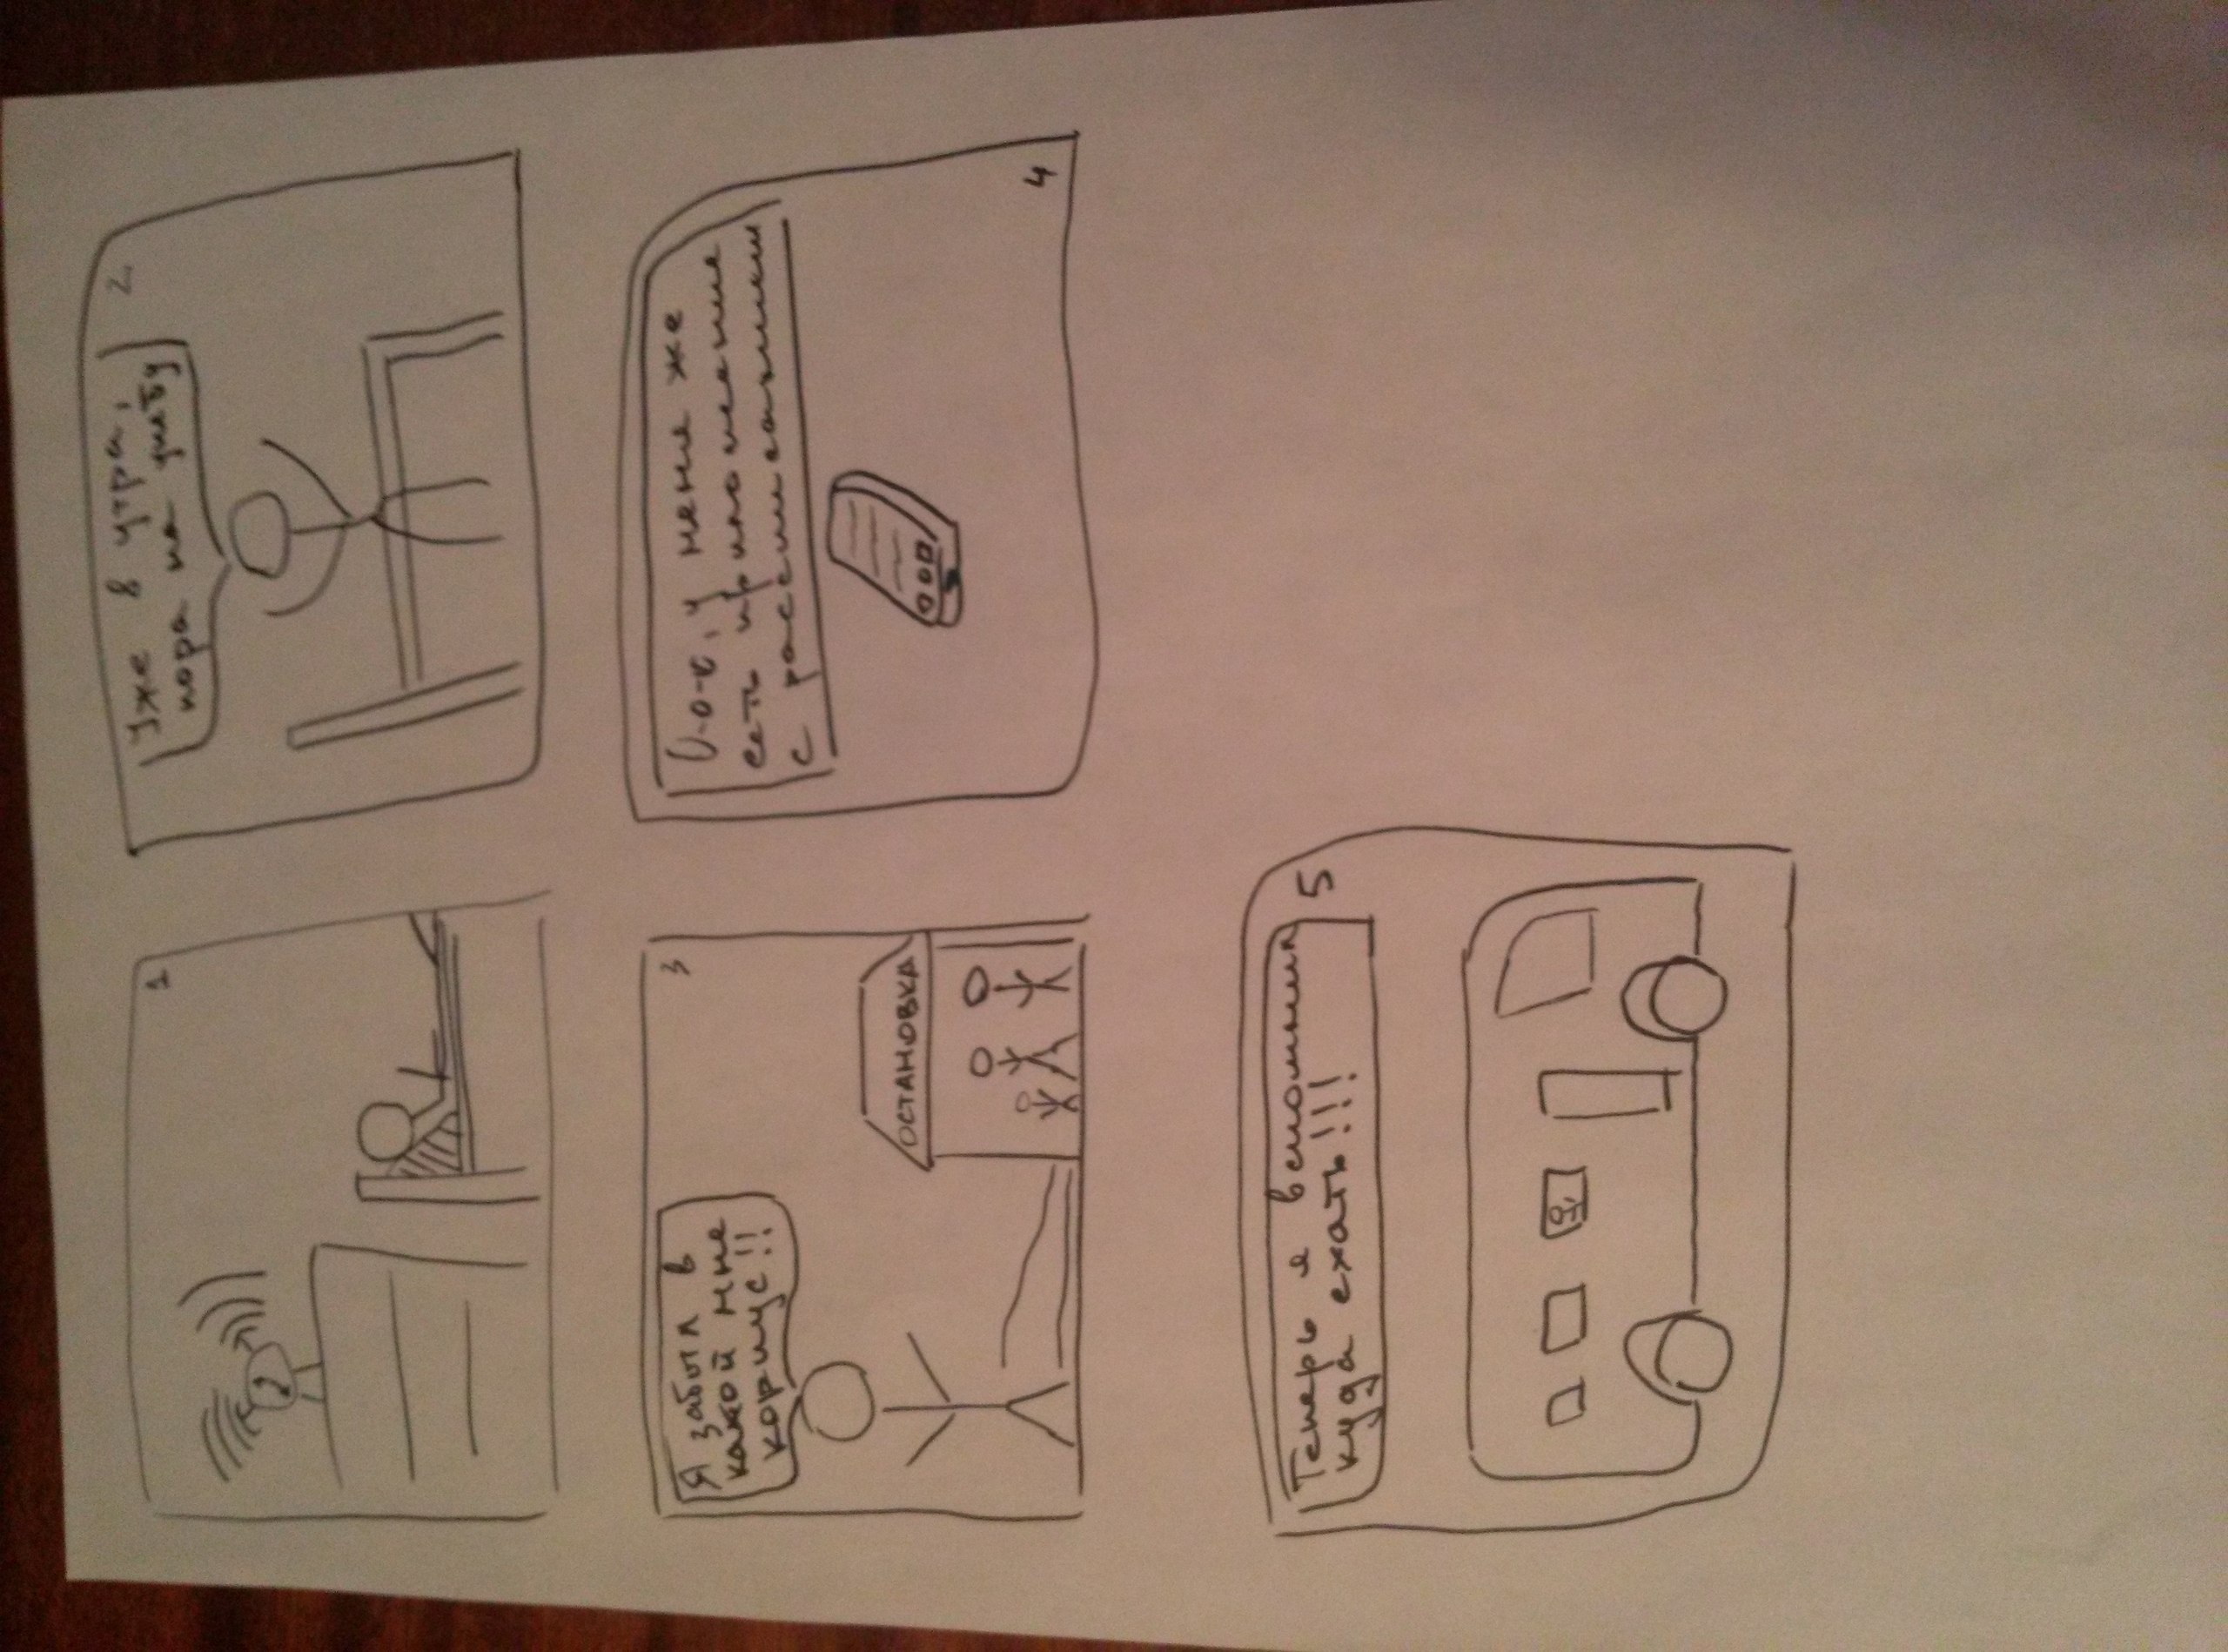 1
Уже 8 утра,
пора на учёбу
2
3
Я забыл в
какой мне
корпус!!
ОСТАНОВКА
О-о-о, у меня же
есть приложение
с расписанием
4
Теперь я вспомнил
куда ехать!!!
5